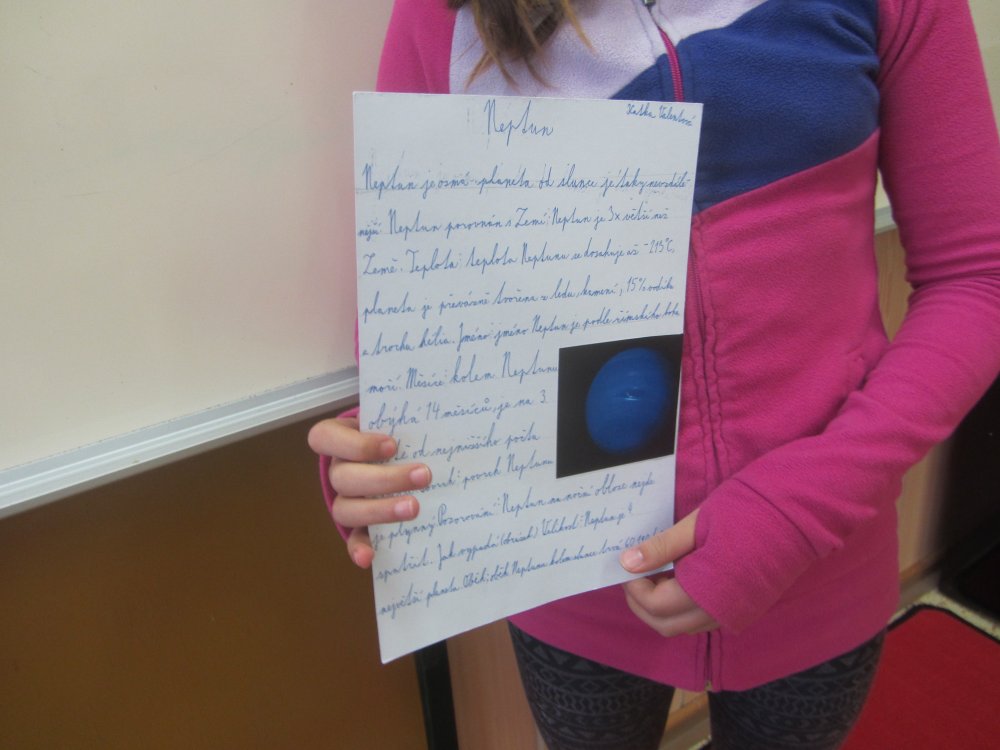 Neptun
Katka Valentová
Neptun je osmá planeta od slunce je taky nevzdále-
nější. Neptun porovnán s Zemí: Neptun je 3x větší než
Země. Teplota: teplota Neptunu se dosahuje až -215°C,
planeta je převážně tvořena z ledu, kamení, 15% vodíku
a trochu hélia. Jméno: jméno Neptun je podle římského boha
moří. Měsíce: kolem Neptunu
obýhá 14 měsíců, je na 3.
od nejnižšího počtu
povrch Neptunu
je plynný. Pozorování: Neptun na noční obloze nejde
spatřit. Jak vypadá (obrázek) Velikost: Neptun je 4.
největší planeta. Oběh: oběh Neptunu kolem slunce trvá 60